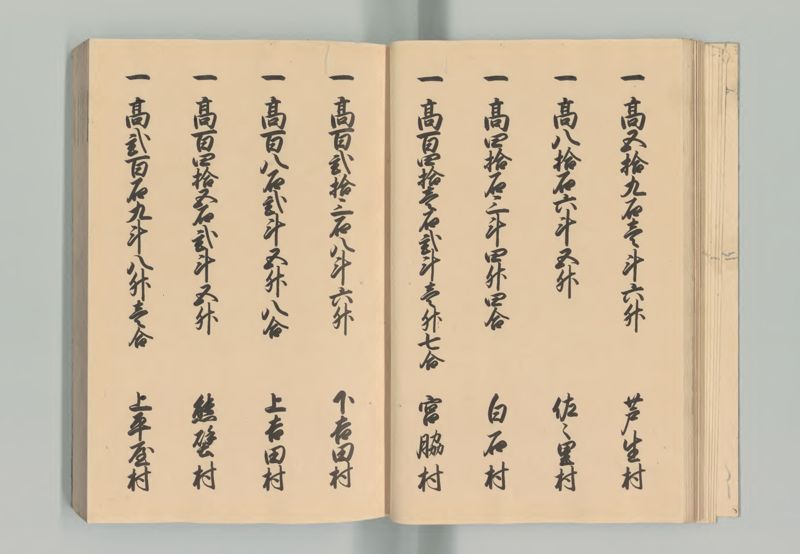 一 高五拾九石壱斗六升 芦生村
一 高八拾石六斗五升 佐々里村
一 高四拾石三斗四升四合 白石村
一 高百四拾壱石弐斗壱升七合 宮脇村
一 高百弐拾三石八斗六升 下吉田村
一 高百八石弐斗五升八合 上吉田村
一 高百四拾五石弐斗五升 熊壁村
一 高弐百石九斗八升壱合 上平屋村